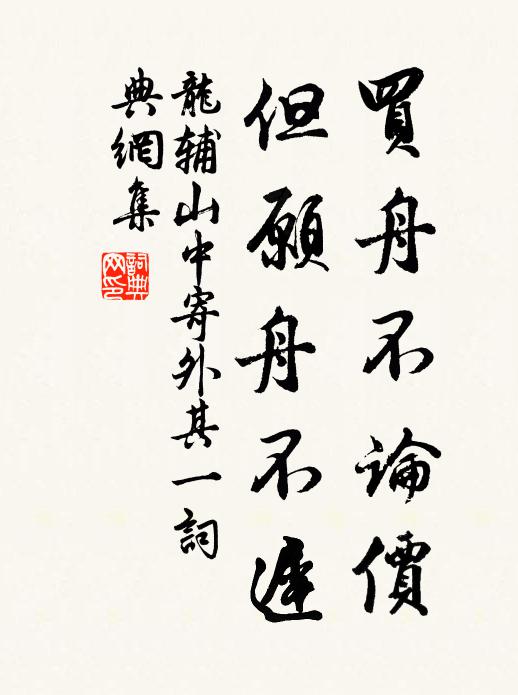 買舟不論價
但願舟不遲
龍輔山中寄外其一詞
典網集
詞典
网印